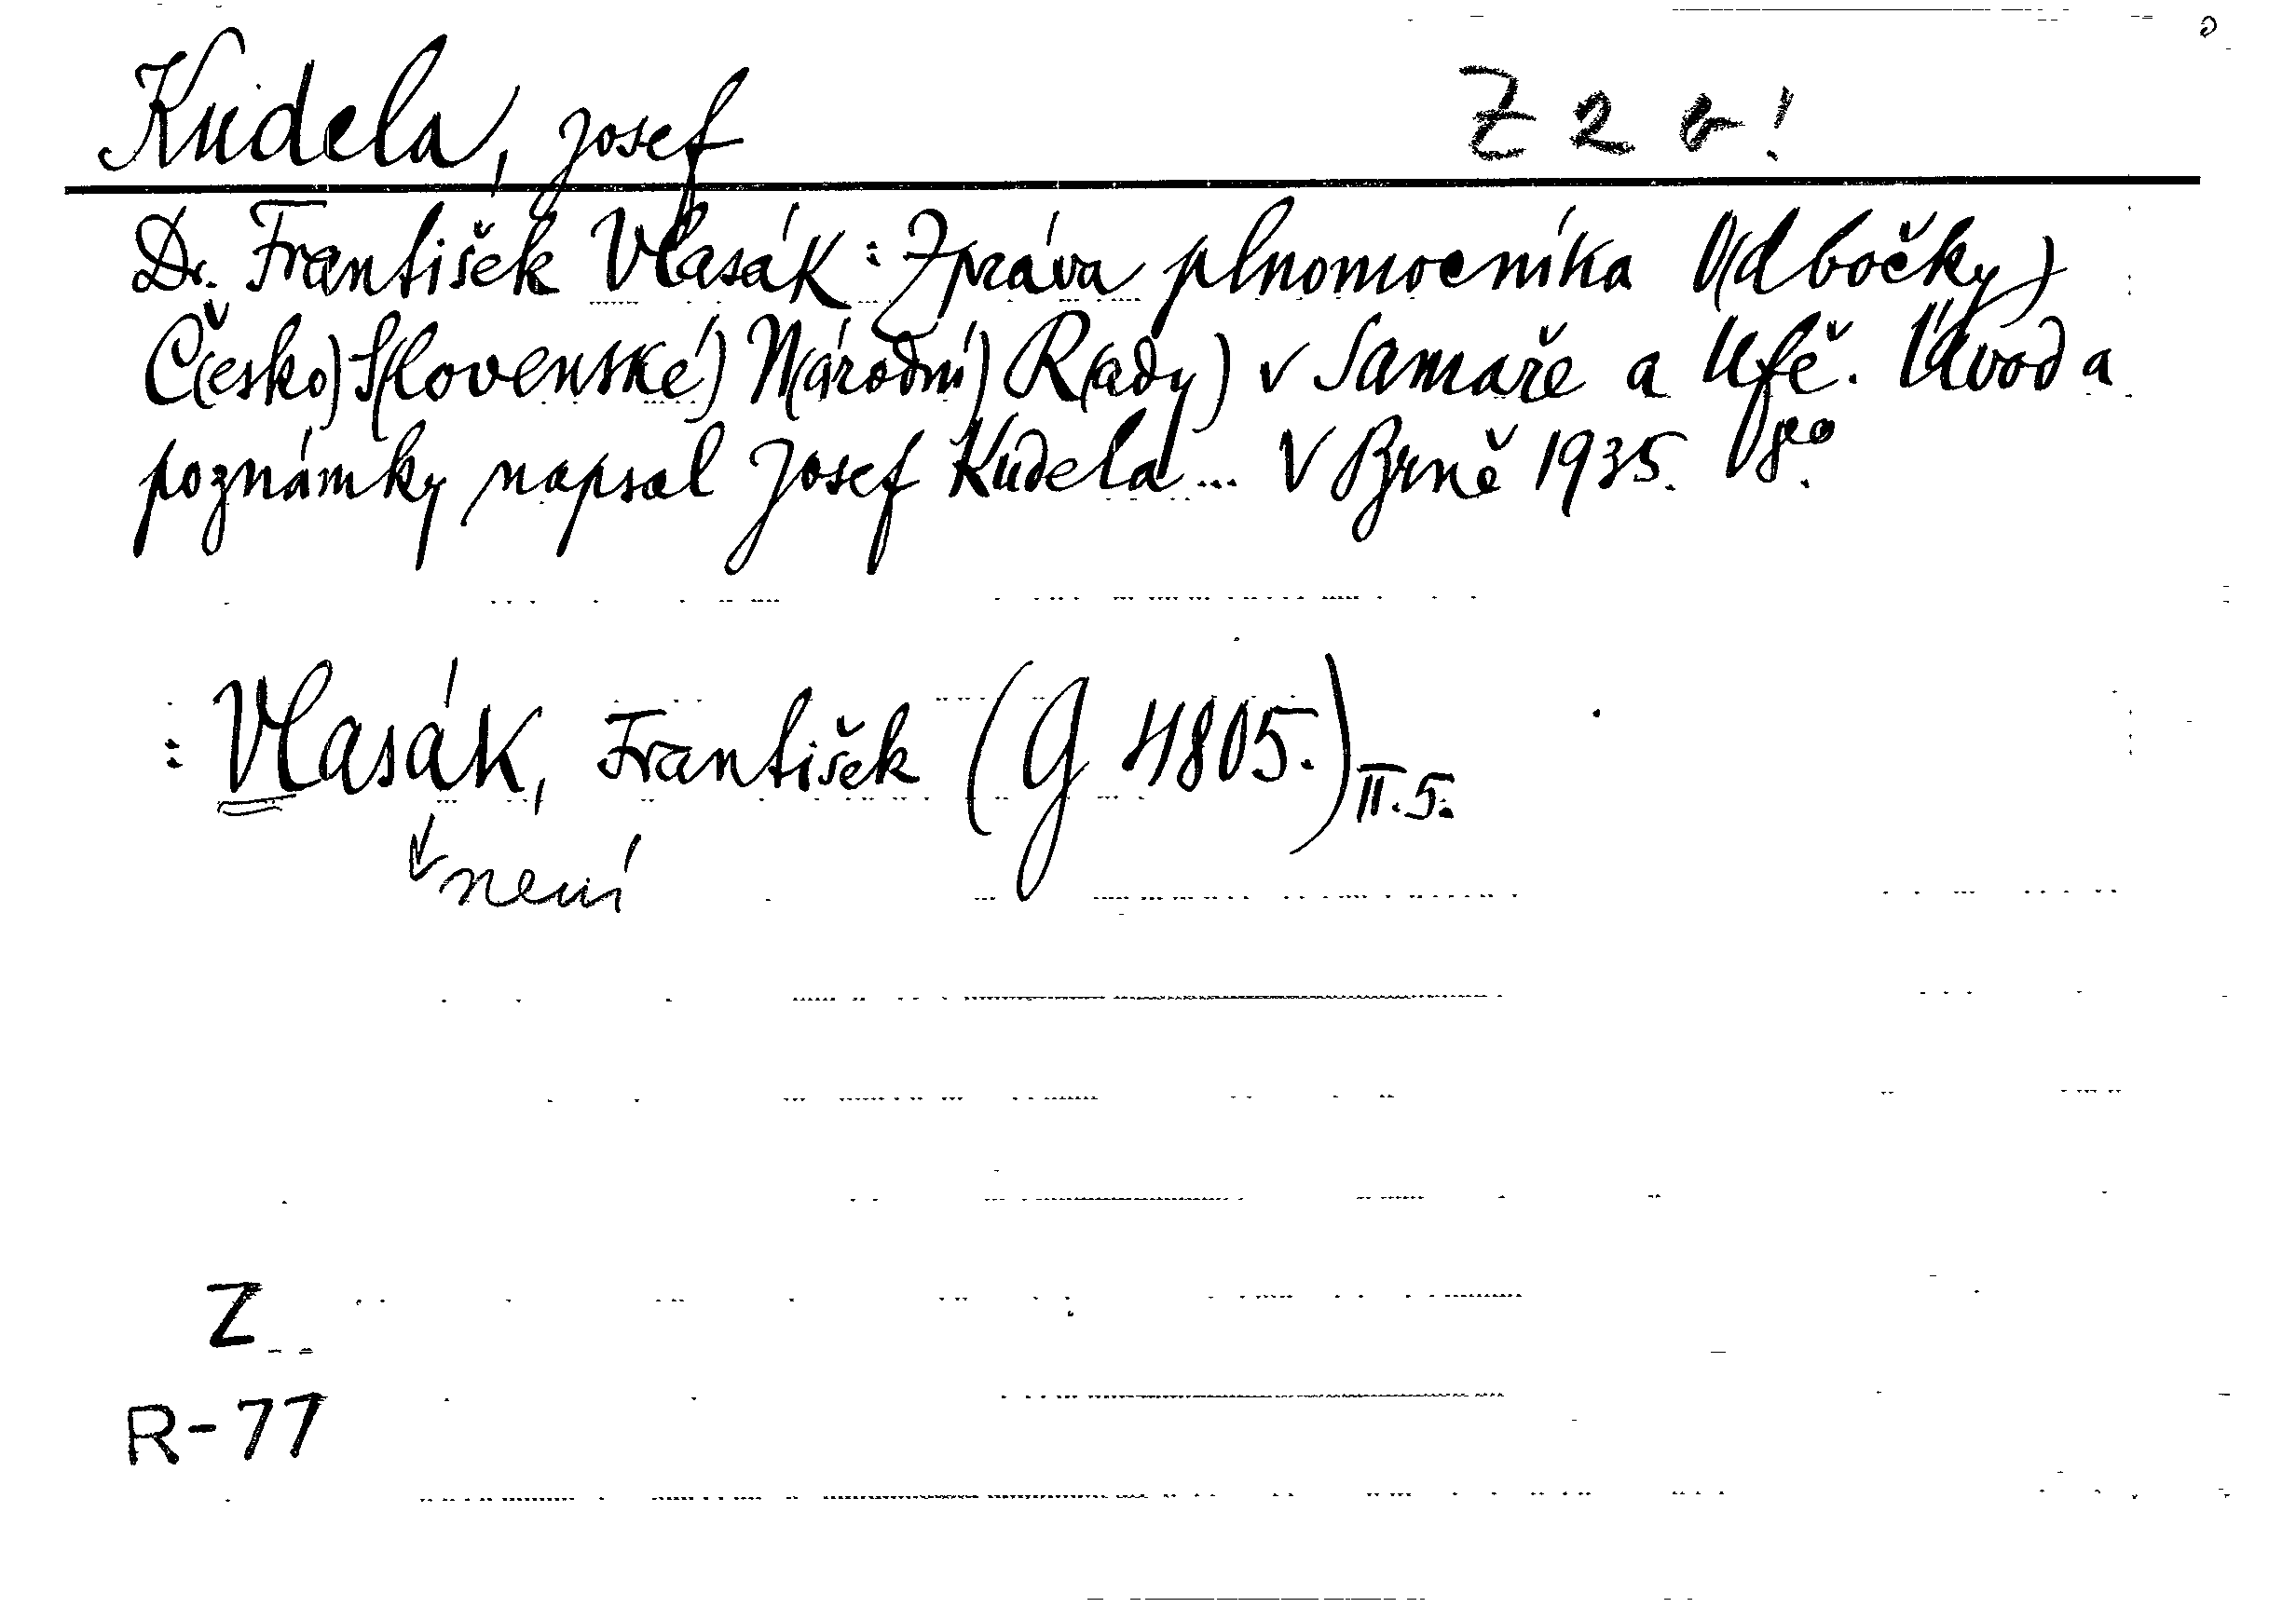 Kudela, Josef
Z 2 b!
Dr. František Vlasák: Zpráva plnomocníka O(dbočky)
Č(esko)S(lovenské) N(árodní) R(ady) v Samaře a Ufě. Úvod a
poznámky napsal Josef Kudela... V Brně 1935. 8°.
: Vlasák, František (G 4805.) II.5.
není
Z
R-77